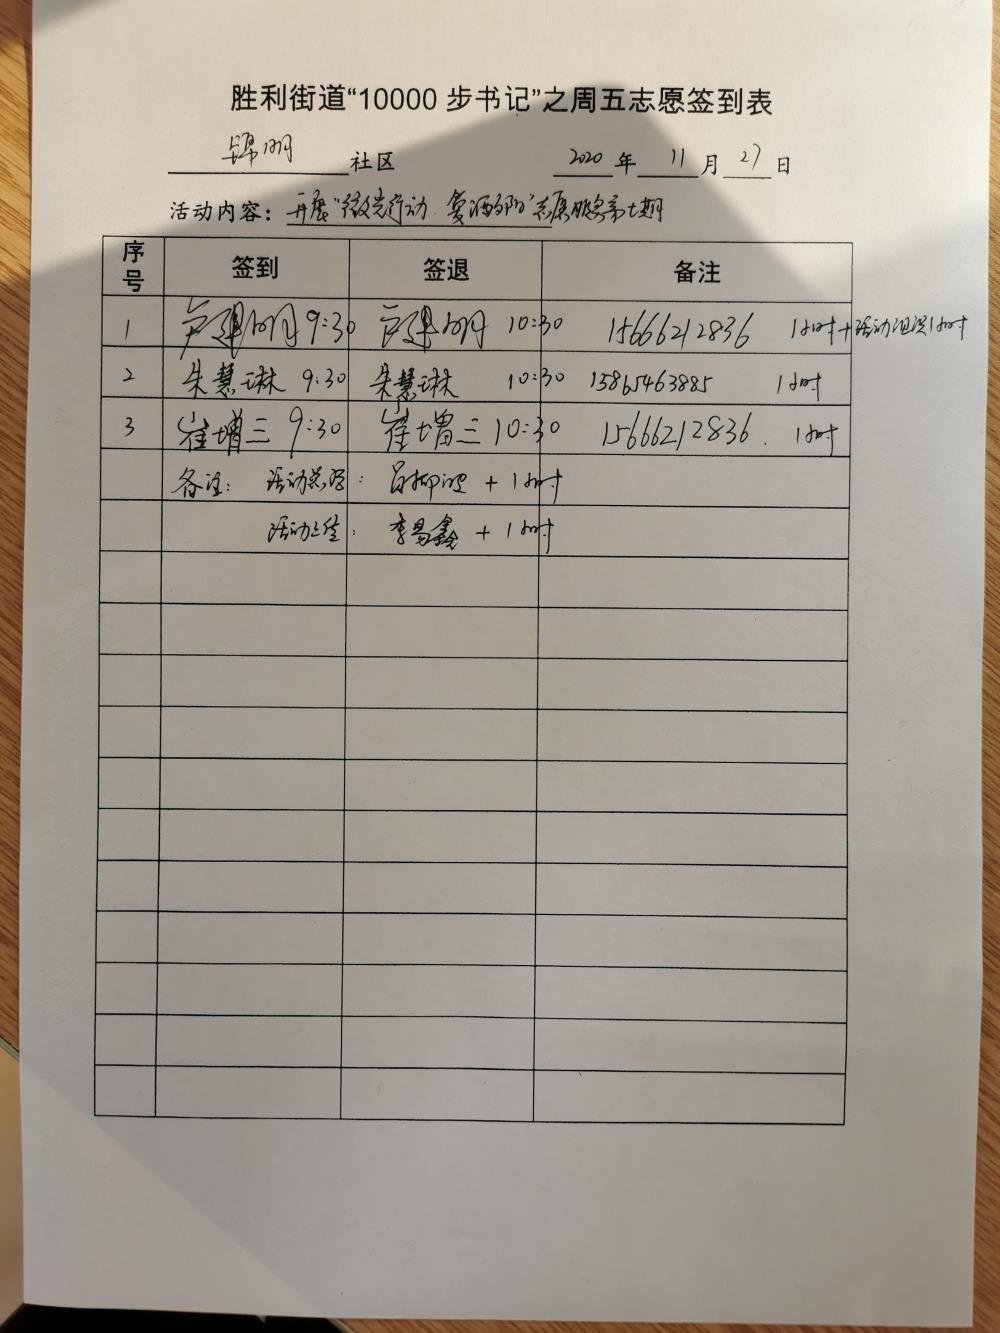 胜利街道“10000 步书记”之周五志愿签到表
锦明 社区 2020 年 11 月 27 日
活动内容：开展“微光行动 爱洒
序号 签到 签退 备注
1 卢建明 9:30 卢建明 10:30 15666212836 1小时+活动组织1小时
2 朱慧琳 9:30 朱慧琳 10:30 15865463885 1小时
3 崔增三 9:30 崔增三 10:30 15666212836. 1小时
备注： 活动 ： 吕柳 + 1小时
活动 ： 李易鑫 + 1小时